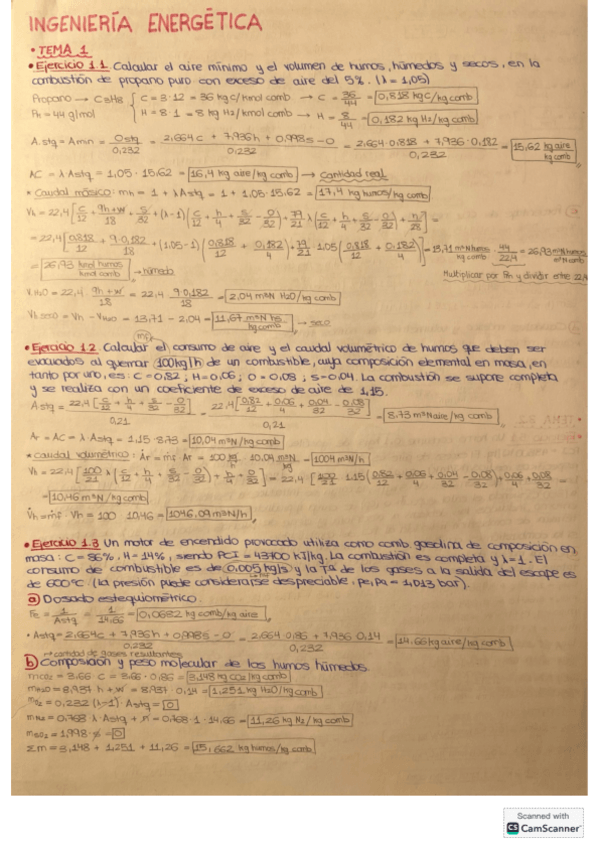 INGENIERÍA ENERGÉTICA
• TEMA 1
• Ejercicio 1.1 Calcular el aire mínimo y el volumen de humos, húmedos y secos, en la
combustión de propano puro con exceso de aire del 5%. (λ = 1,05)
Propano → C3H8 { C = 3·12 = 36 kgC/kmol comb → C = 36/44 = 0,818 kgC/kg comb
Pm = 44 g/mol H = 8·1 = 8 kg H2/kmol comb → H = 8/44 = 0,182 kg H2/kg comb
A.stq = Amin = Ostq/0,232 = 2,664c + 7,936h + 0,998s - O/0,232 = 2,664·0,818 + 7,936·0,182/0,232 = 15,62 kg aire/kg comb
AC = λ Astq = 1,05 · 15,62 = 16,4 kg aire/kg comb → Cantidad real
* Caudal másico: mh = 1 + λ Astq = 1 + 1,05·15,62 = 17,4 kg humos/kg comb
Vh = 22,4 [c/12 + 9h+w/18 + s/32 + (λ-1)(c/12 + h/4 + s/32 - O/32) + 79/21 λ (c/12 + h/4 + s/32 - O/32) + n/28] =
= 22,4 [0,818/12 + 9·0,182/18 + (1,05-1)(0,818/12 + 0,182/4) + 79/21 · 1,05 (0,818/12 + 0,182/4)] = 13,71 m³N humos/kg comb · 44/22,4 = 26,93 m³N humos/m³N comb
= 26,93 kmol humos/kmol comb → húmedo
Multiplicar por Pm y dividir entre 22,4
VH2O = 22,4 9h+w/18 = 22,4 9·0,182/18 = 2,04 m³N H2O/kg comb
Vh seco = Vh - VH2O = 13,71 - 2,04 = 11,67 m³N hs/kg comb → seco
mf
• Ejercicio 1.2 Calcular el consumo de aire y el caudal volumétrico de humos que deben ser
evacuados al quemar 100 kg/h de un combustible, cuya composición elemental en masa, en
tanto por uno, es: C = 0,82; H = 0,06; O = 0,08; S = 0,04. La combustión se supone completa
y se realiza con un coeficiente de exceso de aire de 1,15.
Astq = 22,4 [c/12 + h/4 + s/32 - O/32]/0,21 = 22,4 [0,82/12 + 0,06/4 + 0,04/32 - 0,08/32]/0,21 = 8,73 m³N aire/kg comb
Ar = AC = λ·Astq = 1,15 · 8,73 = 10,04 m³N/kg comb
* Caudal volumétrico: Ȧr = ṁf · Ar = 100 kg/h · 10,04 m³N/kg = 1004 m³N/h
Vh = 22,4 [100/21 λ (c/12 + h/4 + s/32 - O/32) + h/4 + O/32] = 22,4 [100/21 · 1,15 (0,82/12 + 0,06/4 + 0,04/32 - 0,08/32) + 0,06/4 + 0,08/32] =
= 10,46 m³N/kg comb
V̇h = ṁf · Vh = 100 · 10,46 = 1046,09 m³N/h
• Ejercicio 1.3 Un motor de encendido provocado utiliza como comb gasolina de composición en
masa: C = 86%, H = 14%, siendo PCI = 43700 kJ/kg. La combustión es completa y λ=1. El
consumo de combustible es de 0,005 kg/s y la Tª de los gases a la salida del escape es
de 600ºC (la presión puede considerarse despreciable, Pe, Pa = 1,013 bar).
a) Dosado estequiométrico.
Fe = 1/Astq = 1/14,66 = 0,0682 kg comb/kg aire
• Astq = 2,664c + 7,936h + 0,998s - O/0,232 = 2,664·0,86 + 7,936·0,14/0,232 = 14,66 kg aire/kg comb
→ cantidad de gases resultantes
b) Composición y peso molecular de los humos húmedos
mCO2 = 3,66 · C = 3,66 · 0,86 = 3,148 kg CO2/kg comb
mH2O = 8,937 h + w = 8,937 · 0,14 = 1,251 kg H2O/kg comb
mO2 = 0,232 (λ-1) · Astq = 0
mN2 = 0,768 λ Astq + n = 0,768 · 1 · 14,66 = 11,26 kg N2/kg comb
mSO2 = 1,998·s = 0
Σm = 3,148 + 1,251 + 11,26 = 15,662 kg humos/kg comb
Scanned with
CS CamScanner